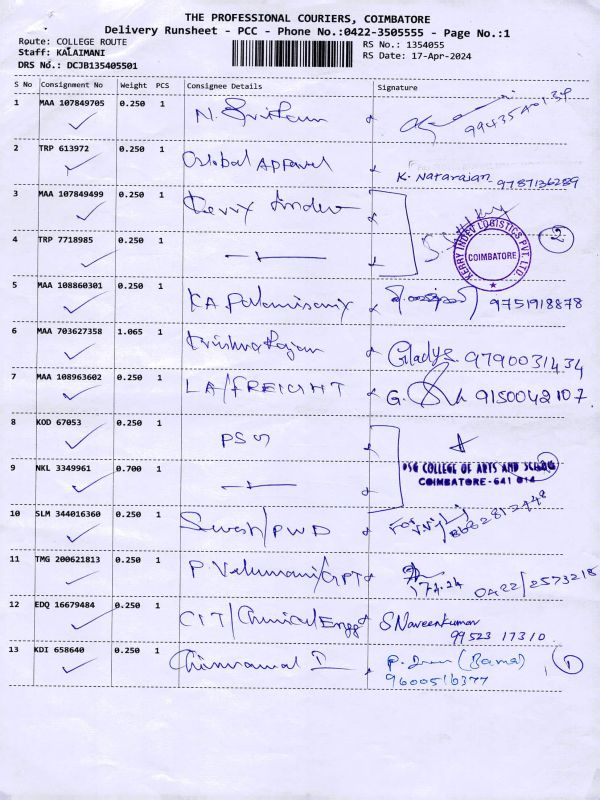 THE PROFESSIONAL COURIERS, COIMBATORE
Delivery Runsheet - PCC - Phone No.:0422-3505555 - Page No.:1
Route: COLLEGE ROUTE RS No.: 1354055
Staff: KALAIMANI RS Date: 17-Apr-2024
DRS No.: DCJB135405501
S No Consignment No Weight PCS Consignee Details Signature
1 MAA 107849705 0.250 1 N.
2 TRP 613972 0.250 1 Global Apparel K. Natarajan 9787136289
3 MAA 107849499 0.250 1 Kerry Indev
4 TRP 7718985 0.250 1
KERRY INDEV LOGISTICS PVT. LTD.
COIMBATORE
2
5 MAA 108860301 0.250 1 KA Palanisamy 9751918878
6 MAA 703627358 1.065 1 Krishna Rajan Gladys 9790031434
7 MAA 108963602 0.250 1 LA/FREIGHT G. 9150042107
8 KOD 67053 0.250 1 PSG
9 NKL 3349961 0.700 1
PSG COLLEGE OF ARTS AND SCIENCE
COIMBATORE - 641 014
10 SLM 344016360 0.250 1 /PWD
11 TMG 200621813 0.250 1 P. Velumani/GPT 0422/2573218
12 EDQ 16679484 0.250 1 CIT/Chemical Engg S Naveenkumar
99523 17310
13 KDI 658640 0.250 1 P. (Bama) 1
9600516377